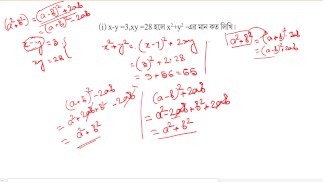 (a²+b²) = (a-b)²+2ab
= (a+b)²-2ab
x-y=3
xy=28
(i) x-y =3,xy =28 হলে x²+y² -এর মান কত লিখি।
x²+y² = (x-y)²+2xy
= (3)²+2.28
= 9+56=65
a²+b² = (a+b)²-2ab
= (a-b)²+2ab
(a+b)²-2ab
= a²+2ab+b²-2ab
= a²+b²
(a-b)²+2ab
= a²-2ab+b²+2ab
= a²+b²